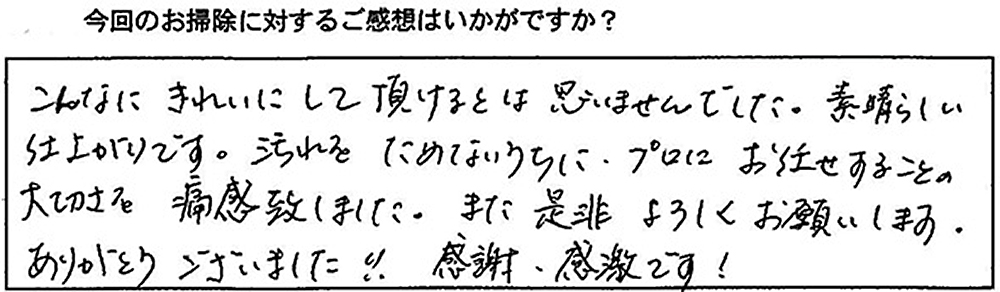 今回のお掃除に対するご感想はいかがですか？
こんなに きれいにして頂けるとは 思いませんでした。素晴らしい
仕上がりです。汚れを ためないうちに、プロに お任せすることの
大切さを 痛感致しました。また 是非 よろしく お願いします。
ありがとう ございました!! 感謝、感激です！